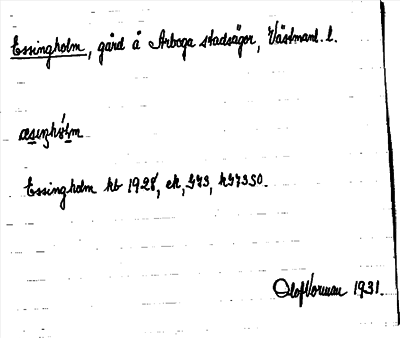 Essingholm, gård å Arboga stadsägor, Västmanl. l.
æsiŋhó̱lm
Essingholm kb 1928, ek, 573, h57350.
Olof Vorman 1931.